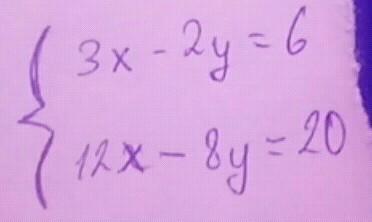 3x - 2y = 6
12x - 8y = 20